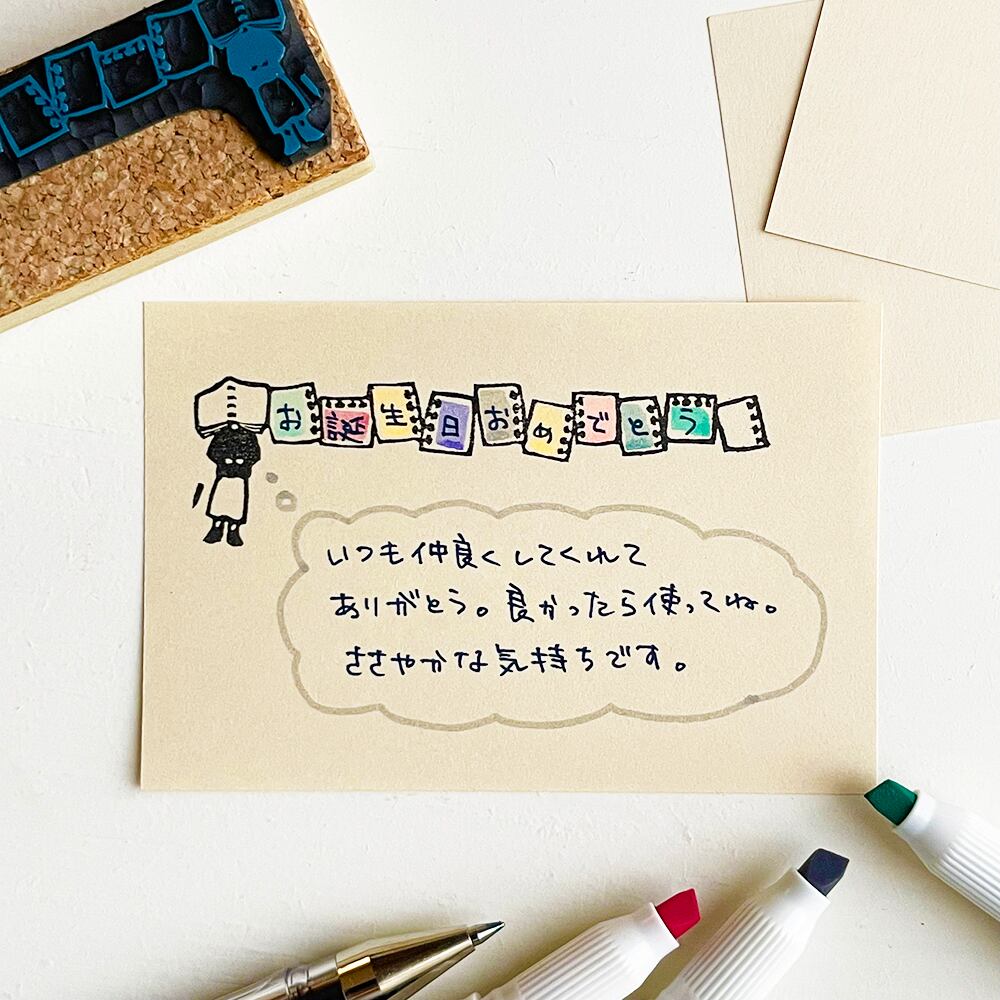 お誕生日おめでとう
いつも仲良くしてくれて
ありがとう。良かったら使ってね。
ささやかな気持ちです。